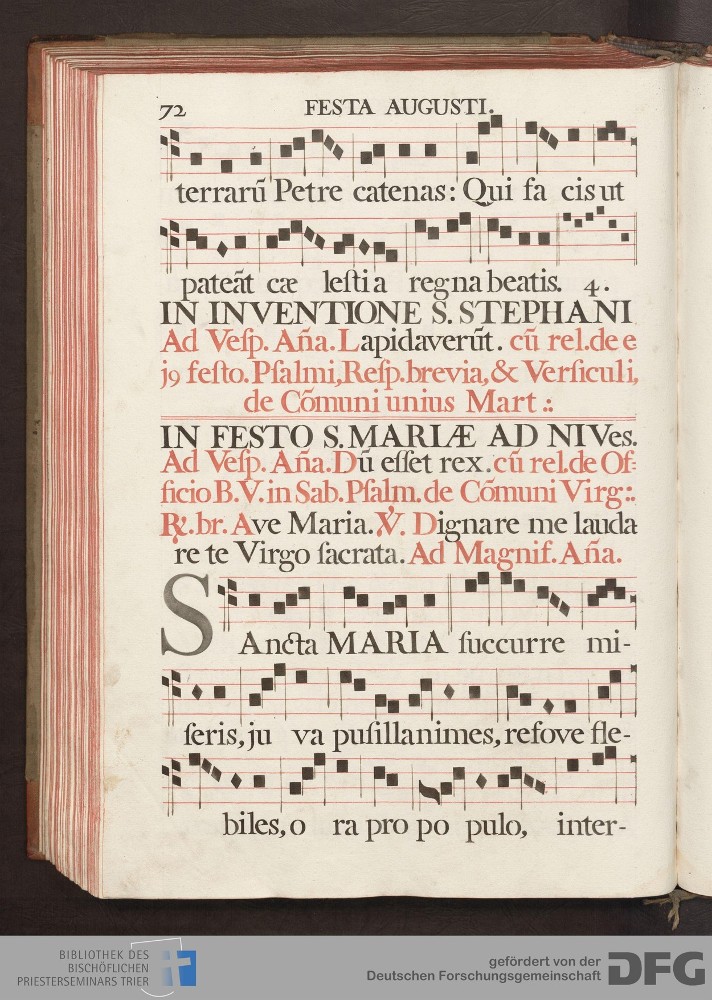 72 FESTA AUGUSTI.
terrarū Petre catenas: Qui fa cis ut
pateāt cæ leſti a regna beatis. 4.
IN INVENTIONE S. STEPHANI
Ad Veſp. Aña. Lapidaverūt. cū rel. de e
j9 feſto. Pſalmi, Reſp. brevia, & Verſiculi,
de Cōmuni unius Mart :.
IN FESTO S. MARIÆ AD NIVes.
Ad Veſp. Aña. Dū eſſet rex. cū rel. de Of=
ficio B. V. in Sab. Pſalm. de Cōmuni Virg:.
℟. br. Ave Maria. ℣. Dignare me lauda
re te Virgo ſacrata. Ad Magnif. Aña.
SAncta MARIA ſuccurre mi-
ſeris, ju va puſillanimes, refove fle-
biles, o ra pro po pulo, inter-
BIBLIOTHEK DES
BISCHÖFLICHEN
PRIESTERSEMINARS TRIER
gefördert von der
Deutschen Forschungsgemeinschaft DFG